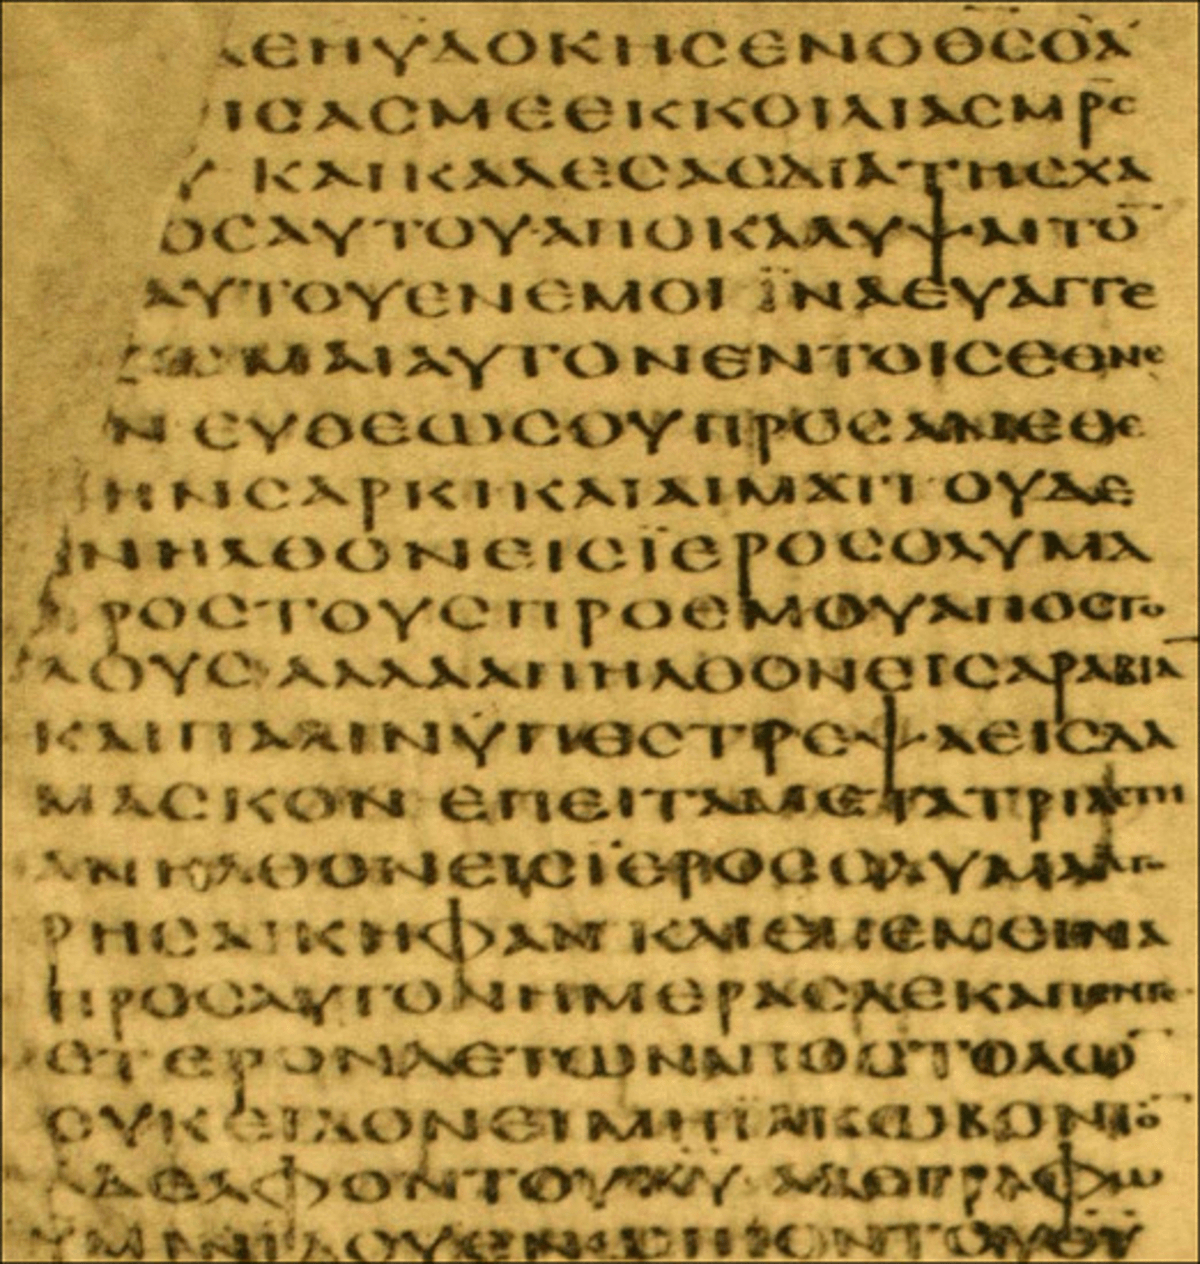 ΔΕΗΥΔΟΚΗΣΕΝΟΘ̅Σ̅ΟΑ
ΙΣΑΣΜΕΕΚΚΟΙΛΙΑΣΜΡ̅Σ̅
Υ ΚΑΙΚΑΛΕΣΑΣΔΙΑΤΗΣΧΑ
ΟΣΑΥΤΟΥ·ΑΠΟΚΑΛΥΨΑΙΤΟ̅
ΑΥΤΟΥΕΝΕΜΟΙ ΪΝΑΕΥΑΓΓΕ
ΖΩΜΑΙΑΥΤΟΝΕΝΤΟΙΣΕΘΝΕ
Ν ΕΥΘΕΩΣΟΥΠΡΟΣΑΝΕΘΕ
ΗΝΣΑΡΚΙΚΑΙΑΙΜΑΤΙ ΟΥΔΕ
ΝΗΛΘΟΝΕΙΣΪΕΡΟΣΟΛΥΜΑ
ΡΟΣΤΟΥΣΠΡΟΕΜΟΥΑΠΟΣΤΟ
ΛΟΥΣ ΑΛΛΑΑΠΗΛΘΟΝΕΙΣΑΡΑΒΙΑ̅
ΚΑΙΠΑΛΙΝΫΠΕΣΤΡΕΨΑΕΙΣΔΑ
ΜΑΣΚΟΝ ΕΠΕΙΤΑΜΕΤΑΤΡΙΑΕΤΗ
ΑΝΗΛΘΟΝΕΙΣΪΕΡΟΣΟΛΥΜΑ
ΡΗΣΑΙΚΗΦΑΝ ΚΑΙΕΠΕΜΕΙΝΑ
ΠΡΟΣΑΥΤΟΝΗΜΕΡΑΣΔΕΚΑΠΕΝΤΕ
ΕΤΕΡΟΝΔΕΤΩΝΑΠΟΣΤΟΛΩ̅
ΟΥΚΕΙΔΟΝΕΙΜΗΪΑΚΩΒΟΝΤΟ̅
ΑΔΕΛΦΟΝΤΟΥΚ̅Υ̅ ΑΔΕΓΡΑΦΩ
ΥΜΙΝΙΔΟΥΕΝΩΠΙΟΝΤΟΥΘ̅Υ̅